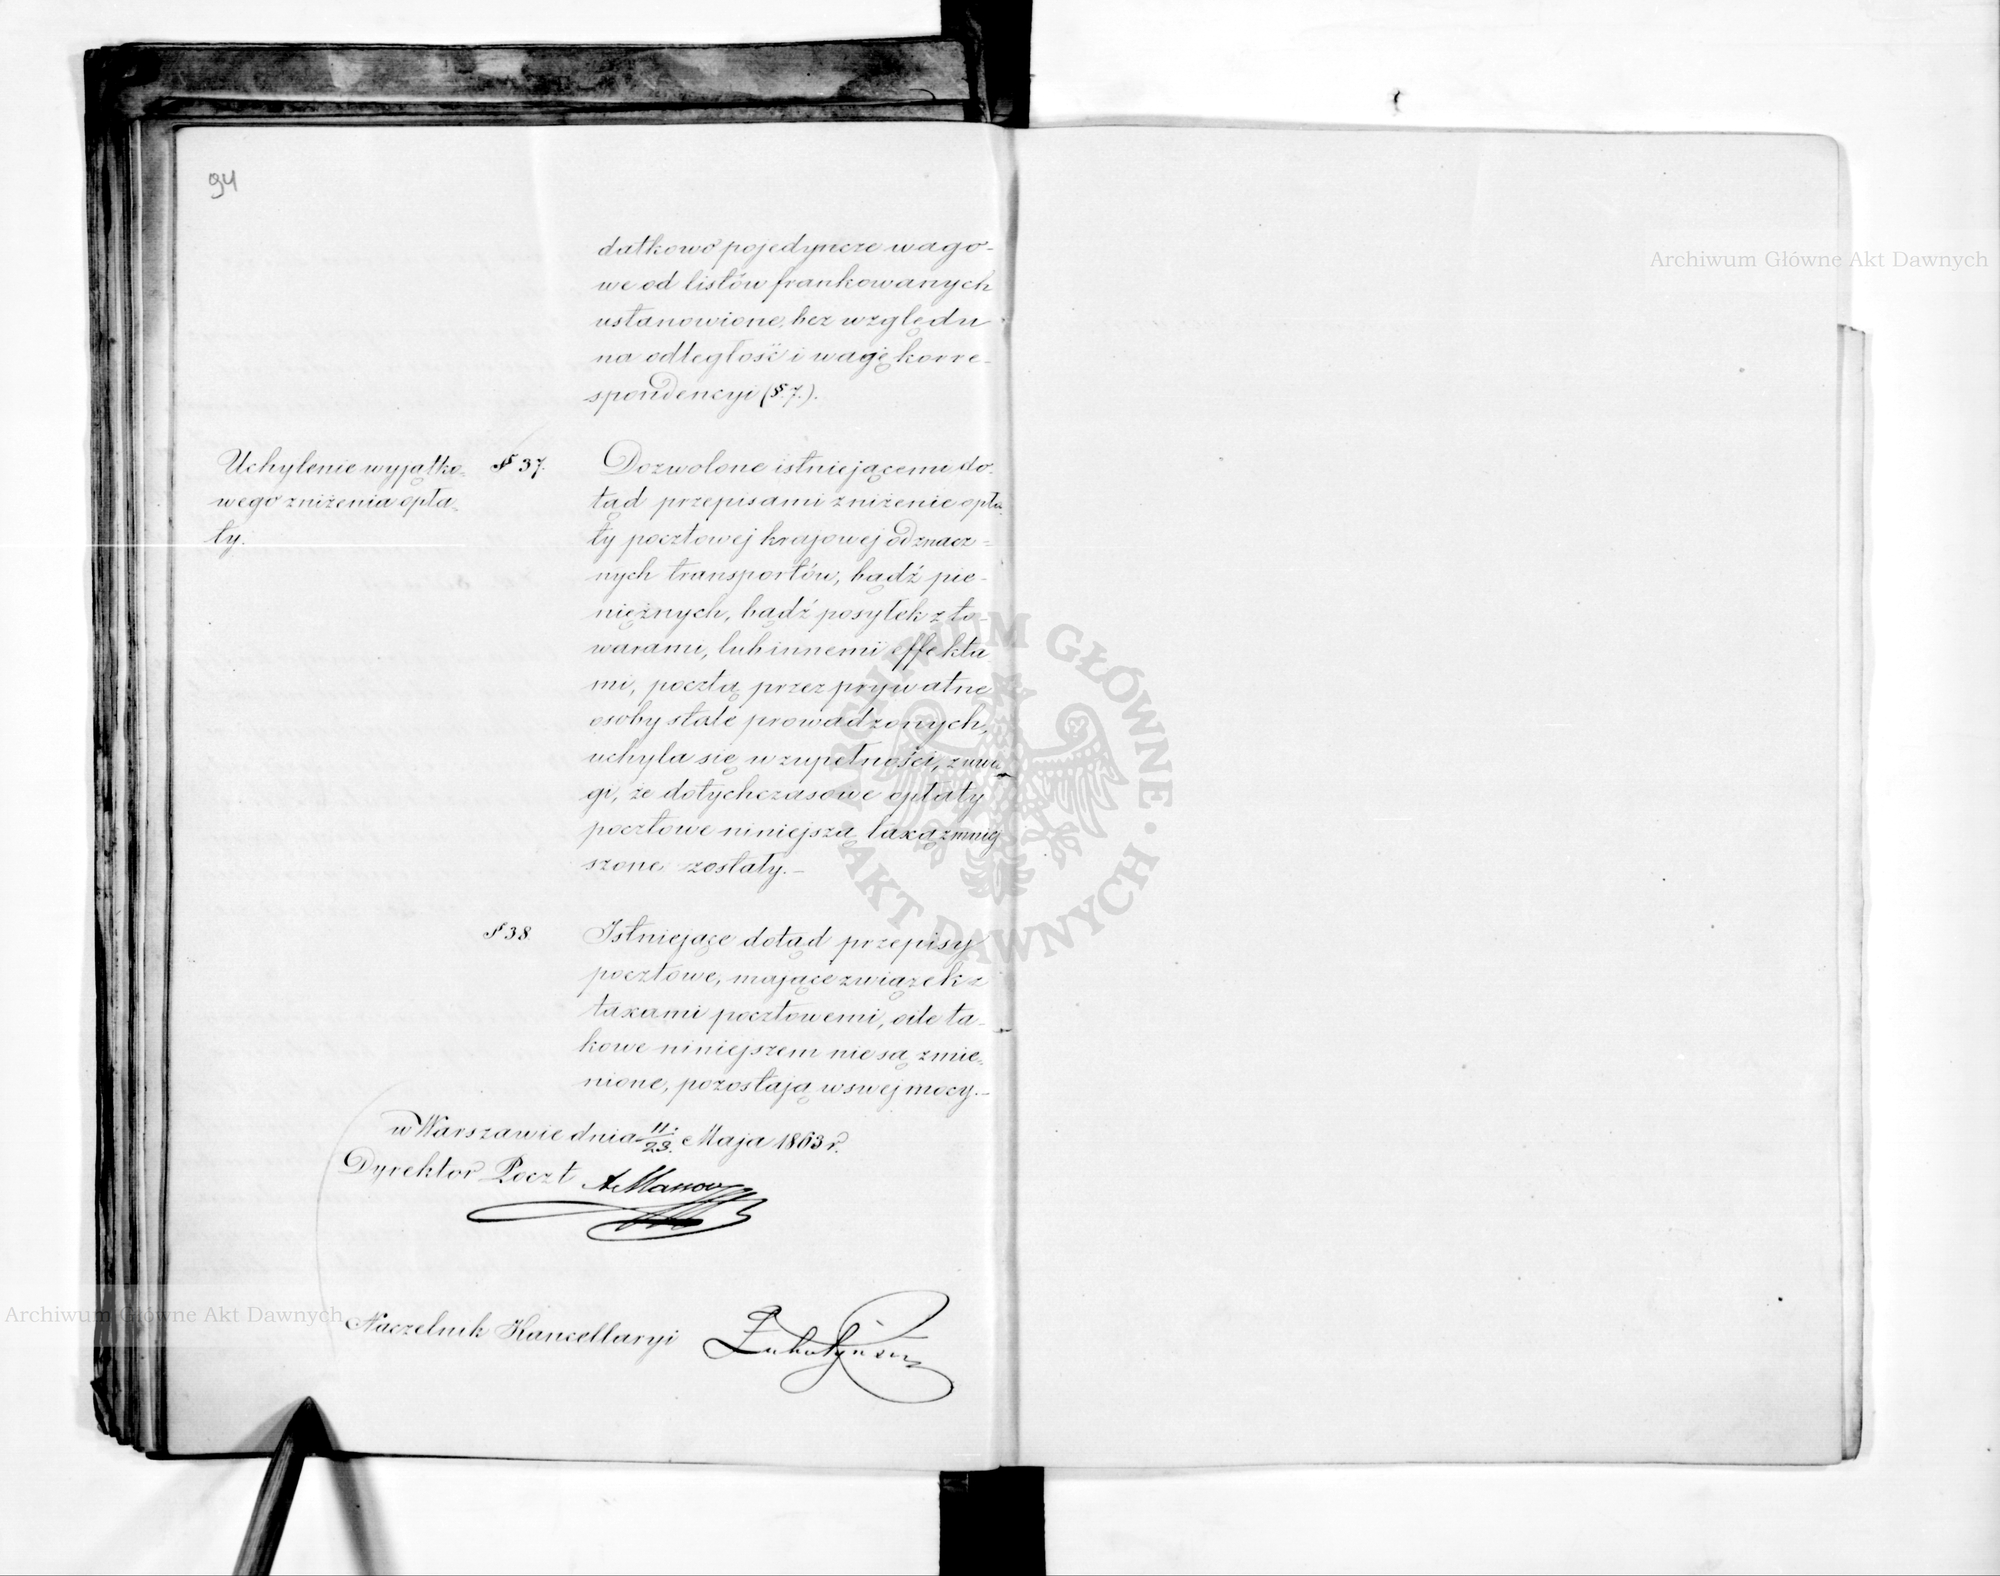 94
datkowo pojedyncze wago-
we od listów frankowanych
ustanowione, bez względu
na odległość i wagę korre-
spondencyi (§ 7.).
Uchylenie wyjątko-
wego zniżenia opła-
ty.
§ 37.
Dozwolone istniejącemi do-
tąd przepisami zniżenie opła-
ty pocztowej krajowej od znacz-
nych transportów, bądź pie-
niężnych, bądź posyłek z to-
warami, lub innemi effekta
mi, pocztą przez prywatne
osoby stale prowadzonych,
uchyla się w zupełności, z uwa
gi, że dotychczasowe opłaty
pocztowe niniejszą taxą zmniej
szone zostały.-
§ 38.
Istniejące dotąd przepisy
pocztowe, mające związek z
taxami pocztowemi, o ile ta-
kowe niniejszem nie są zmie-
nione, pozostają w swej mocy.-
w Warszawie dnia 11/23. Maja 1863 r.
Dyrektor Poczt
Naczelnik Kancellaryi
Archiwum Główne Akt Dawnych
Archiwum Główne Akt Dawnych
ARCHIWUM GŁÓWNE
AKT DAWNYCH